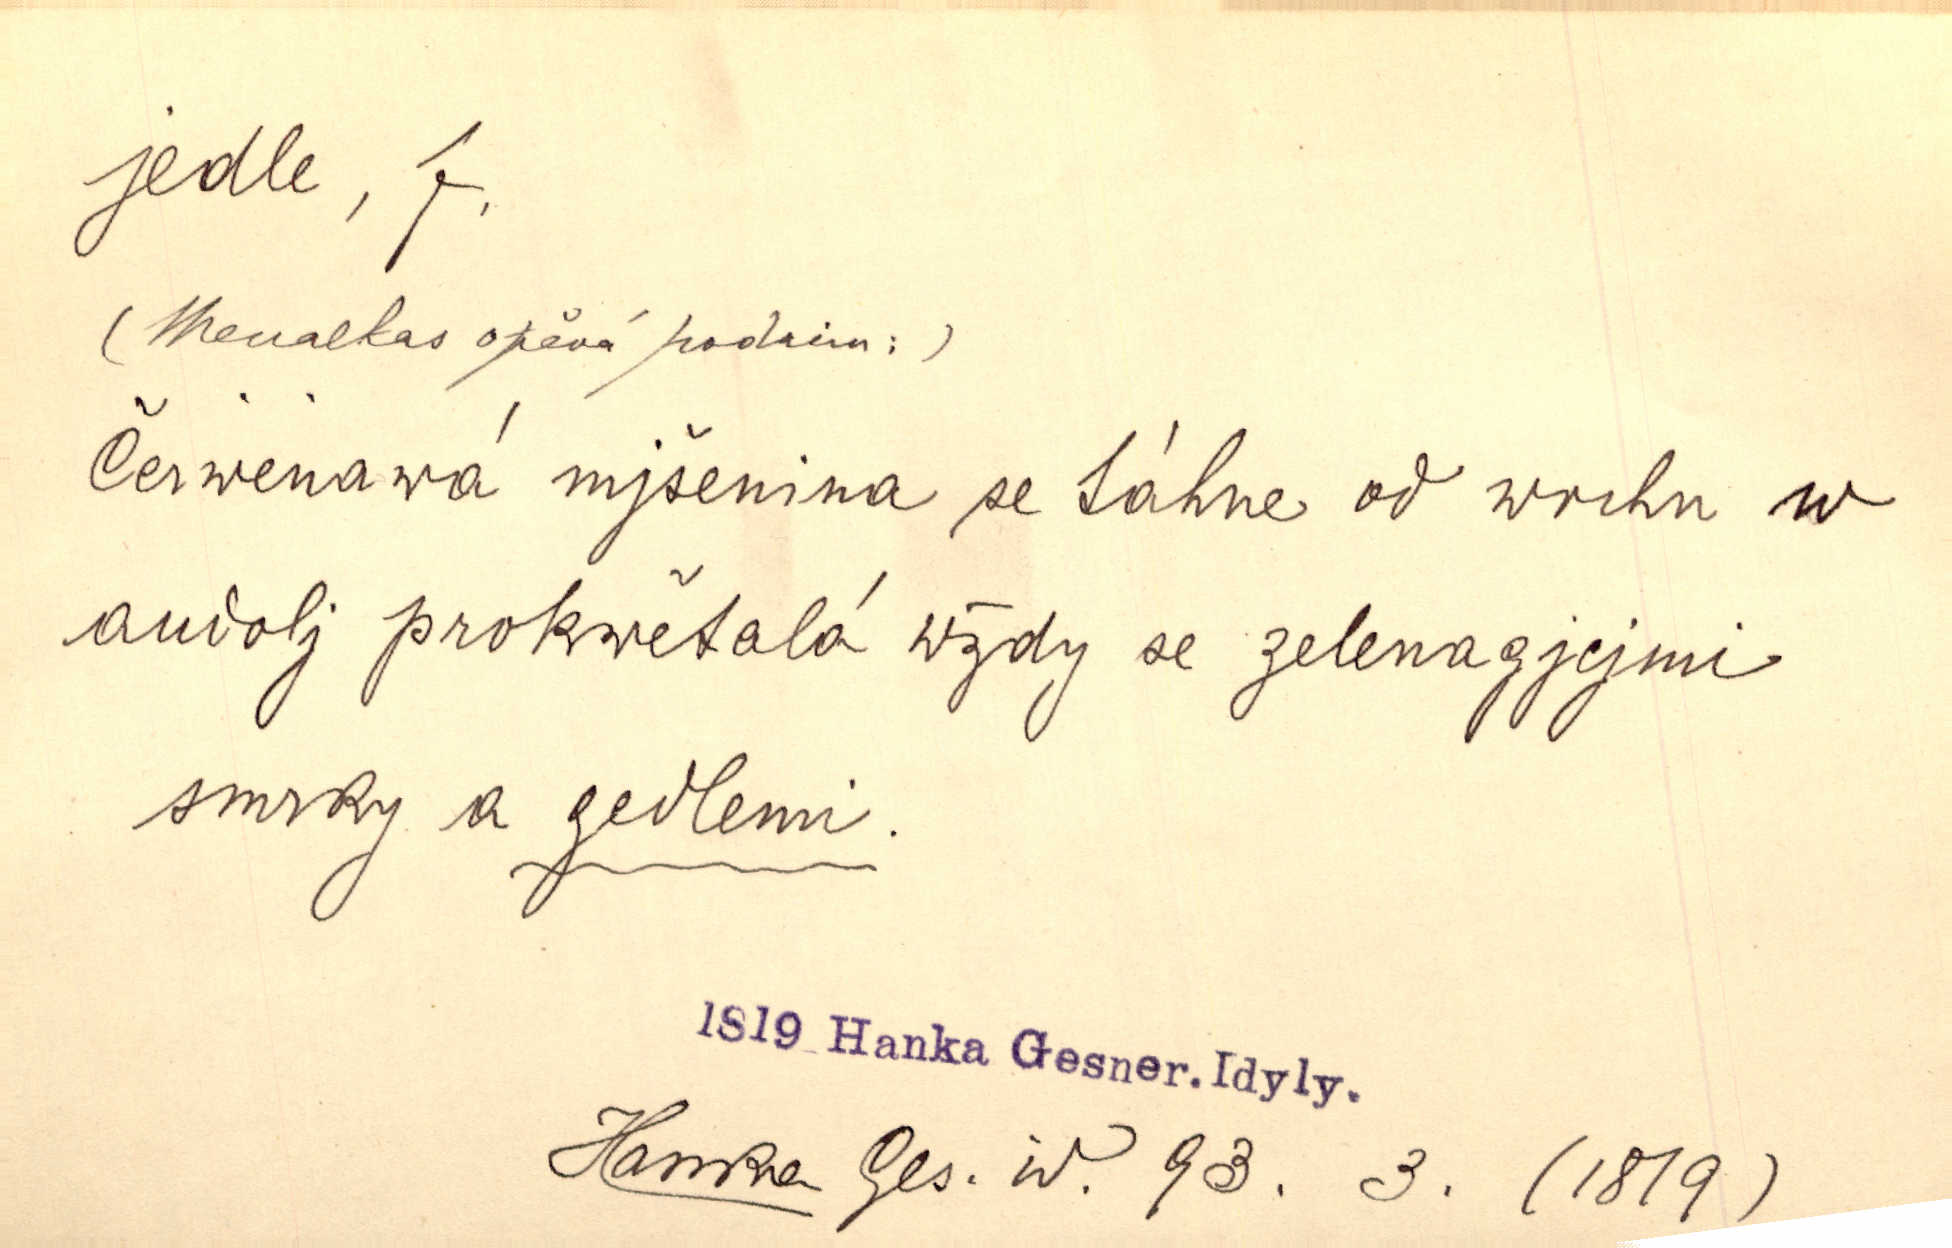 jedle, f.
(Menalkas opěvá podzim:)
Čerwenawá mjšenina se táhne od wrchu w
audolj prokwětalá wždy se zelenagjcjmi
smrky a gedlemi.
1819 Hanka Gesner. Idyly.
Hanka Ges. id. 93. 3. (1819)